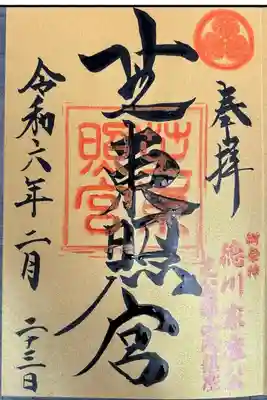 奉拝
御祭神
徳川家康公
芝東照宮
芝東照宮
令和六年二月
二十三日